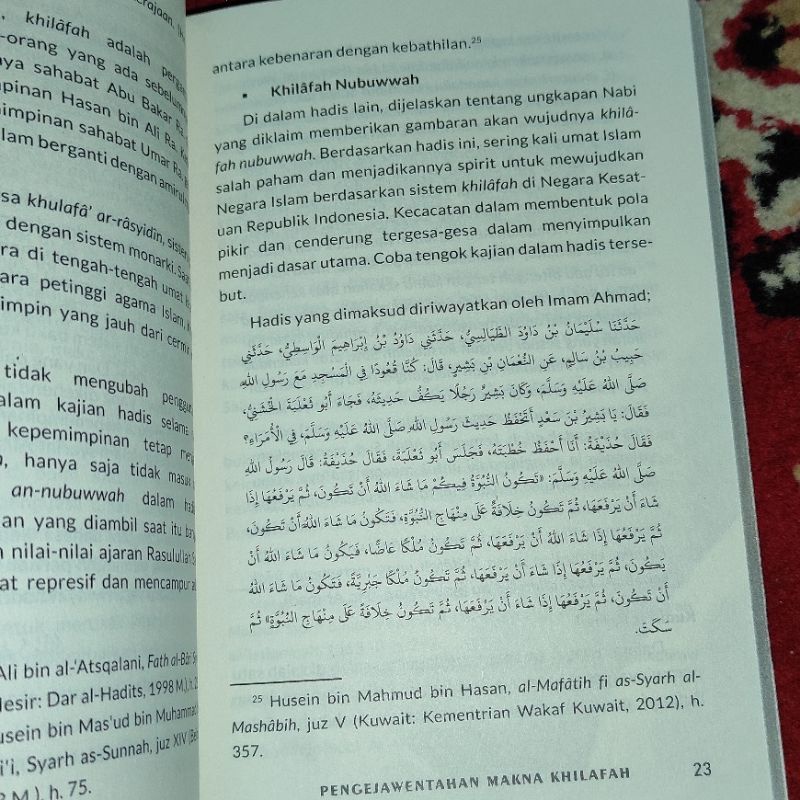 erajaan.
khilâfah adalah
-orang yang ada
ya sahabat Abu Bakar Ra.
pinan Hasan bin Ali Ra.
impinan sahabat Umar Ra.
lam berganti dengan
sa khulafâ' ar-râsyidin,
dengan sistem monarki.
ra di tengah-tengah umat
ara petinggi agama Islam,
impin yang jauh dari
tidak mengubah
alam kajian hadis selama
kepemimpinan tetap
hanya saja tidak
an-nubuwwah dalam
an yang diambil saat itu
n nilai-nilai ajaran Rasulullah
at represif dan
Ali bin al-'Atsqalani, Fath al-Bâri
Mesir: Dar al-Hadits, 1998 M.), h.
usein bin Mas'ud bin Muhammad
i'i, Syarh as-Sunnah, juz XIV
h. 75.
antara kebenaran dengan kebathilan.25
▪ Khilâfah Nubuwwah
Di dalam hadis lain, dijelaskan tentang ungkapan Nabi
yang diklaim memberikan gambaran akan wujudnya khilâ-
fah nubuwwah. Berdasarkan hadis ini, sering kali umat Islam
salah paham dan menjadikannya spirit untuk mewujudkan
Negara Islam berdasarkan sistem khilâfah di Negara Kesat-
uan Republik Indonesia. Kecacatan dalam membentuk pola
pikir dan cenderung tergesa-gesa dalam menyimpulkan
menjadi dasar utama. Coba tengok kajian dalam hadis terse-
but.
Hadis yang dimaksud diriwayatkan oleh Imam Ahmad;
حَدَّثَنَا سُلَيْمَانُ بْنُ دَاوُدَ الطَّيَالِسِيُّ، حَدَّثَنِي دَاوُدُ بْنُ إِبْرَاهِيمَ الْوَاسِطِيُّ، حَدَّثَنِي
حَبِيبُ بْنُ سَالِمٍ، عَنِ النُّعْمَانِ بْنِ بَشِيرٍ، قَالَ: كُنَّا قُعُودًا فِي الْمَسْجِدِ مَعَ رَسُولِ اللهِ
صَلَّى اللهُ عَلَيْهِ وَسَلَّمَ، وَكَانَ بَشِيرٌ رَجُلًا يَكُفُّ حَدِيثَهُ، فَجَاءَ أَبُو ثَعْلَبَةَ الْخُشَنِيُّ،
فَقَالَ: يَا بَشِيرُ بْنَ سَعْدٍ أَتَحْفَظُ حَدِيثَ رَسُولِ اللهِ صَلَّى اللهُ عَلَيْهِ وَسَلَّمَ، فِي الْأُمَرَاءِ؟
فَقَالَ حُذَيْفَةُ: أَنَا أَحْفَظُ خُطْبَتَهُ، فَجَلَسَ أَبُو ثَعْلَبَةَ، فَقَالَ حُذَيْفَةُ: قَالَ رَسُولُ اللهِ
صَلَّى اللهُ عَلَيْهِ وَسَلَّمَ: «تَكُونُ النُّبُوَّةُ فِيكُمْ مَا شَاءَ اللهُ أَنْ تَكُونَ، ثُمَّ يَرْفَعُهَا إِذَا
شَاءَ أَنْ يَرْفَعَهَا، ثُمَّ تَكُونُ خِلَافَةٌ عَلَى مِنْهَاجِ النُّبُوَّةِ، فَتَكُونُ مَا شَاءَ اللهُ أَنْ تَكُونَ،
ثُمَّ يَرْفَعُهَا إِذَا شَاءَ اللهُ أَنْ يَرْفَعَهَا، ثُمَّ تَكُونُ مُلْكًا عَاضًّا، فَيَكُونُ مَا شَاءَ اللهُ أَنْ
يَكُونَ، ثُمَّ يَرْفَعُهَا إِذَا شَاءَ أَنْ يَرْفَعَهَا، ثُمَّ تَكُونُ مُلْكًا جَبْرِيَّةً، فَتَكُونُ مَا شَاءَ اللهُ
أَنْ تَكُونَ، ثُمَّ يَرْفَعُهَا إِذَا شَاءَ أَنْ يَرْفَعَهَا، ثُمَّ تَكُونُ خِلَافَةً عَلَى مِنْهَاجِ النُّبُوَّةِ» ثُمَّ
سَكَتَ.
25 Husein bin Mahmud bin Hasan, al-Mafâtih fi as-Syarh al-
Mashâbih, juz V (Kuwait: Kementrian Wakaf Kuwait, 2012), h.
357.
PENGEJAWENTAHAN MAKNA KHILAFAH 23